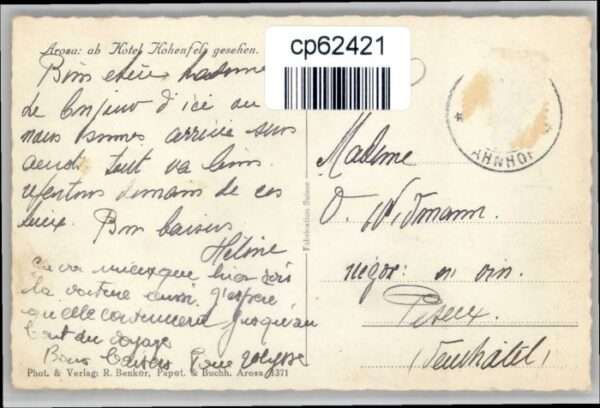 Arosa: ab Hotel Hohenfels gesehen.
cp62421
Bien chère Madame
Le bonjour d'ici ou
nous sommes arrivée sans
aucun tout va bien
demain de ces
lieux. Bon baisers
Hélène
Ça va mieux que hier soir
la voiture aussi. J'espère
qu'elle continuera jusqu'au
bout du voyage
Bons baisers
Phot. & Verlag: R. Benkör, Papet. & Buchh. Arosa 1371
Fabrication Suisse
AHNHOF
Madame
O. Widmann.
négoc: en vin.
Peseux.
(Neuchâtel)